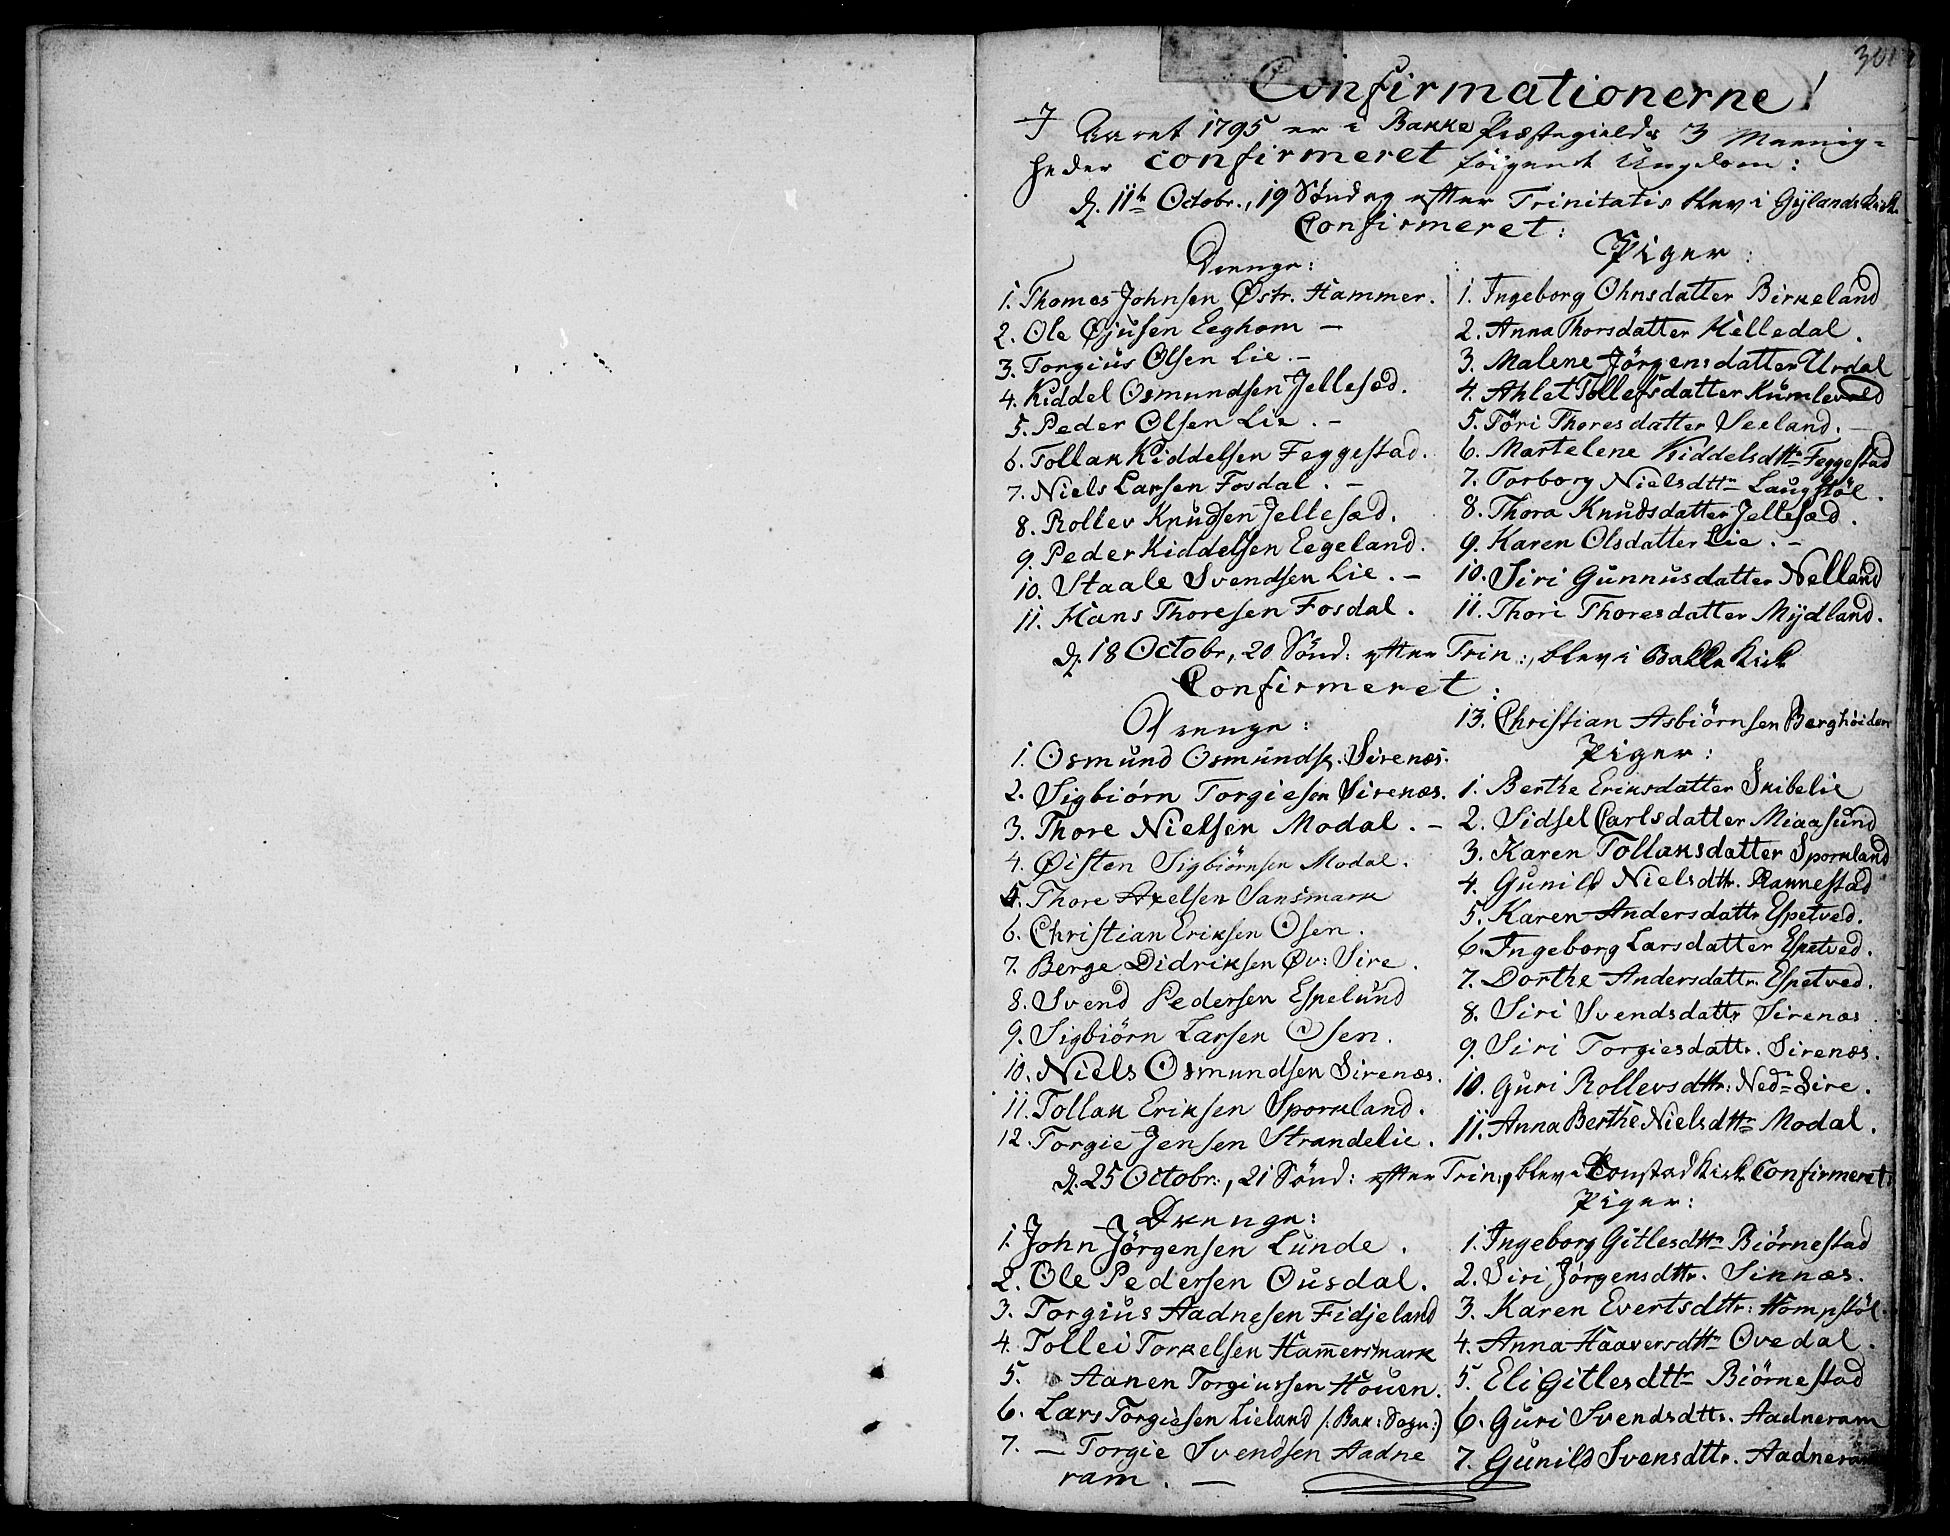 301
Confirmationerne!
I Aaret 1795 er i Bakke Præstegields 3 Meenig=
heder confirmeret følgende Ungdom:
d. 11te Octobr., 19 Söndag efter Trinitatis blev i Gÿlands Kirk
Confirmeret:
Drenge:
1. Thomas Johnsen Østr. Hammer.
2. Ole Øjusen Eeghom –
3. Torgius Olsen Lie. –
4. Kiddel Osmundsen Jellesæd.
5. Peder Olsen Lie. –
6. Tollak Kiddelsen Feggestad.
7. Niels Larsen Fosdal. –
8. Rollev Knudsen Jellesæd.
9. Peder Kiddelsen Eegeland.
10. Staale Svendsen Lie. –
11. Hans Thoresen Fosdal.
Piger:
1. Ingeborg Ohnsdatter Birkeland
2. Anna Thorsdatter Helledal.
3. Malene Jörgensdatter Urdal
4. Ahlet Tollefsdatter Kumlevold
5. Töri Thoresdatter Veeland. –
6. Martelene Kiddelsdttr Feggestad
7. Torborg Nielsdttr Laugstöl.
8. Thora Knudsdatter Jellesæd.
9. Karen Olsdatter Lie. –
10. Siri Gunnusdatter Nelland
11. Thori Thoresdatter Mÿdland.
d. 18 Octobr, 20 Sönd: efter Trin:, blev i Bakke Kirk
Confirmeret:
Drenge:
1. Osmund Osmundsk. Sirenæs.
2. Sigbiörn Torgiesen Sirenæs.
3. Thore Nielsen Modal. –
4. Øisten Sigbiörnsen Modal.
5. Thore Axelsen Sansmark
6. Christian Eriksen Osen.
7. Berge Didriksen Øv: Sire.
8. Svend Pedersen Espelund
9. Sigbiörn Larsen Osen.
10. Niels Osmundsen Sirenæs.
11. Tollak Eriksen Sporkland.
12. Torgie Jensen Strandelie.
13. Christian Asbiörnsen Berghöiden
Piger:
1. Berthe Eriksdatter Skibelie
2. Sidsel Carlsdatter Miaasund
3. Karen Tollaksdatter Sporkland
4. Gunild Nielsdttr. Rannestad
5. Karen Andersdattr Espetved.
6. Ingeborg Larsdatter Espetved.
7. Dorthe Andersdattr. Espetved.
8. Siri Svendsdattr Sirenæs
9. Siri Torgiesdattr. Sirenæs.
10. Guri Rollevsdttr: Nedr Sire.
11. Anna Berthe Nielsdttr Modal.
d. 25 Octobr:, 21 Sönd: efter Trin:, blev i Tonstad Kirk Confirmeret:
Drenge:
1. John Jörgensen Lunde.
2. Ole Pedersen Ousdal.
3. Torgius Aadnesen Fidjeland
4. Tollei Torkelsen Ham̄ersmark
5. Aanen Torgiussen Houen.
6. Lars Torgiesen Lieland /: Bak: Sogn:)
7. – Torgie Svendsen Aadne
ram. –
Piger:
1. Ingeborg Gitlesdttr Biörnestad
2. Siri Jörgensdttr. Sinnæs.
3. Karen Evertsdttr: Hompstöl.
4. Anna Haaversdttr Ovedal.
5. Eli Gitlesdttr Biörnestad
6. Guri Svendsdttr. Aadneram
7. Gunild Svensdttr. Aadneram